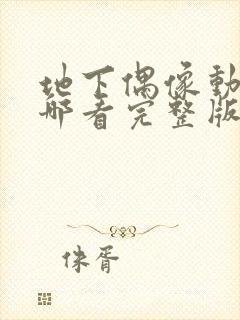 地下偶像動
哪看完整版
侏胥